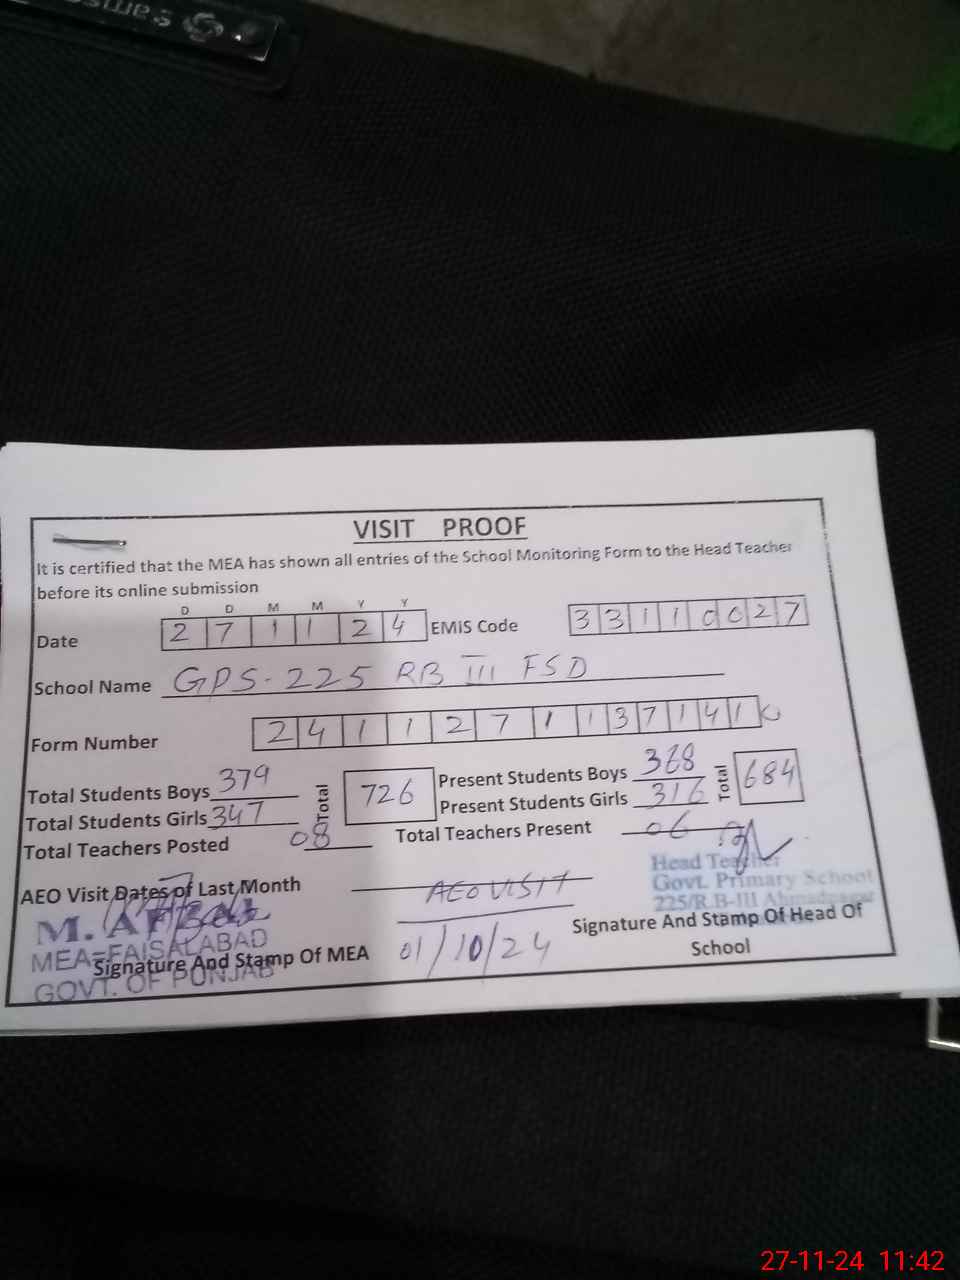 VISIT PROOF
It is certified that the MEA has shown all entries of the School Monitoring Form to the Head Teacher
before its online submission
D D M M Y Y
Date 2 7 1 1 2 4 EMIS Code 3 3 1 1 0 0 2 7
School Name GPS-225 RB III FSD
Form Number 2 4 1 1 2 7 1 1 3 7 1 4 1 0
Total Students Boys 379 Total 726 Present Students Boys 368 Total 684
Total Students Girls 347 Present Students Girls 316
Total Teachers Posted 08 Total Teachers Present 06
Head Teacher
Govt. Primary School
225/R.B-III Ahmadnagar
AEO Visit Dates of Last Month AEO VISIT
01/10/24
M. AFZAL
MEA-FAISALABAD
GOVT. OF PUNJAB
Signature And Stamp Of MEA
Signature And Stamp Of Head Of
School
27-11-24 11:42